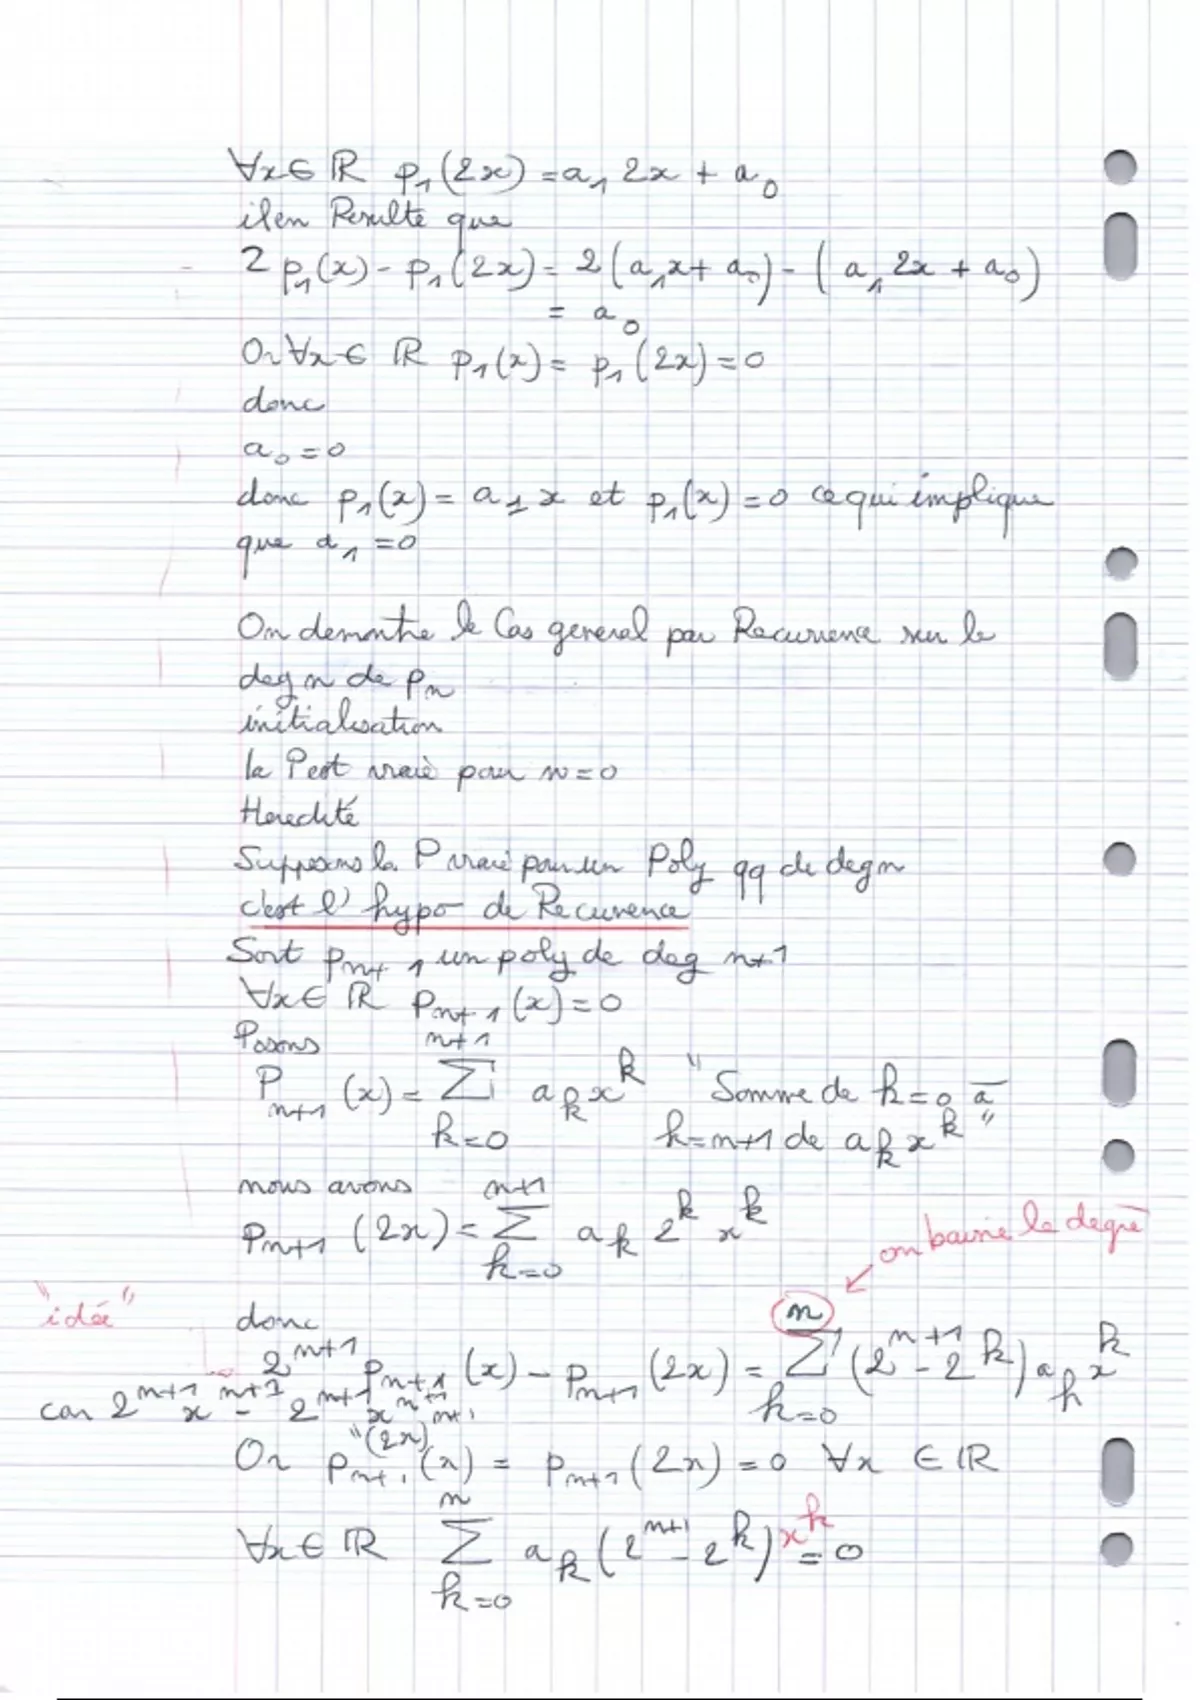 ∀x∈ ℝ p₁(2x) = a₁ 2x + a₀
il en Resulte que
2 p₁(x) - p₁(2x) = 2(a₁x + a₀) - (a₁ 2x + a₀)
= a₀
Or ∀x∈ ℝ p₁(x) = p₁(2x) = 0
donc
a₀ = 0
donc p₁(x) = a₁ x et p₁(x) = 0 ce qui implique
que a₁ = 0
On demontre le Cas general par Recurrence sur le
deg n de pₙ
initialisation
la P est vraie pour n = 0
Heredité
Supposons la P vraie pour un Poly qq de deg n
c'est l' hypo de Recurence
Soit pₙ₊₁ un poly de deg n+1
∀x∈ ℝ Pₙ₊₁(x) = 0
Posons
Pₙ₊₁(x) = ∑_{k=0}^{n+1} aₖxᵏ "Somme de k=0 à
k=n+1 de aₖxᵏ"
nous avons
Pₙ₊₁(2x) = ∑_{k=0}^{n+1} aₖ 2ᵏ xᵏ
on baisse le degré
"idée" donc
2ⁿ⁺¹ Pₙ₊₁(x) - Pₙ₊₁(2x) = ∑_{k=0}^{n} (2ⁿ⁺¹ - 2ᵏ) aₖ xᵏ
car 2ⁿ⁺¹ xⁿ⁺¹ - 2ⁿ⁺¹ xⁿ⁺¹
"(2x)ⁿ⁺¹
Or Pₙ₊₁(x) = Pₙ₊₁(2x) = 0 ∀x ∈ ℝ
∀x∈ ℝ ∑_{k=0}^{n} aₖ(2ⁿ⁺¹ - 2ᵏ) xᵏ = 0